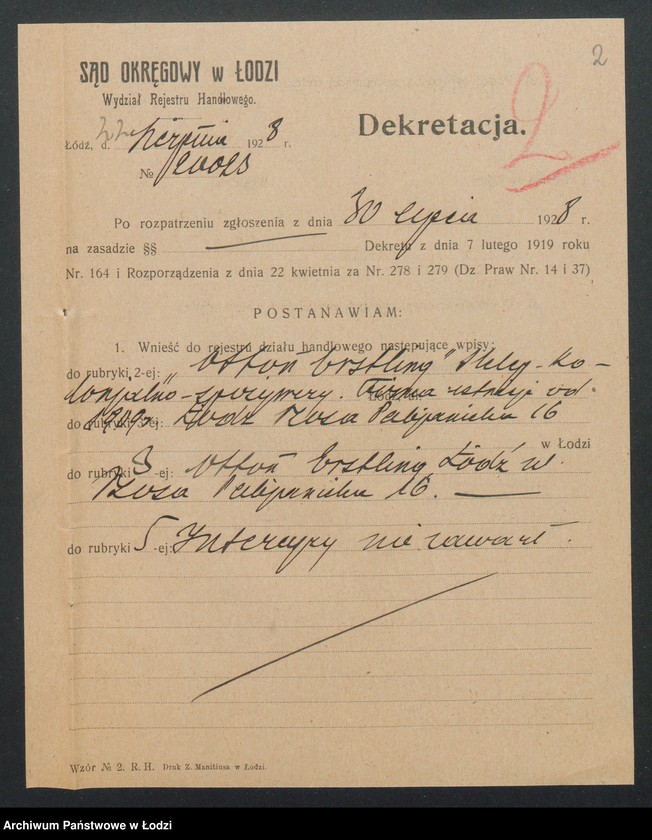 2
SĄD OKRĘGOWY w ŁODZI
Wydział Rejestru Handlowego.
Dekretacja.
2
Łódź, d. 22 sierpnia 1928 r.
№
Po rozpatrzeniu zgłoszenia z dnia 30 lipca 1928 r.
na zasadzie §§ Dekretu z dnia 7 lutego 1919 roku
Nr. 164 i Rozporządzenia z dnia 22 kwietnia za Nr. 278 i 279 (Dz. Praw Nr. 14 i 37)
POSTANAWIAM:
1. Wnieść do rejestru działu handlowego następujące wpisy:
do rubryki 2-ej: „Otton Erstling" Sklep-ko-
lonjalno-spożywczy. Firma istnieje od
do rubryki 3-ej: Łódź Szosa Pabijanicka 16
w Łodzi
do rubryki 3-ej: Otton Erstling Łódź ul.
Szosa Pabijanicka 16.
do rubryki 5-ej: Intercyzy nie zawarł.
Wzór № 2. R. H. Druk Z. Manitiusa w Łodzi.
Archiwum Państwowe w Łodzi